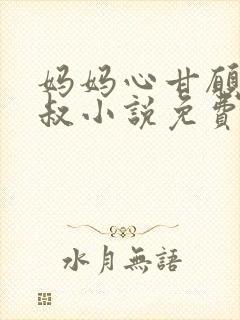 妈妈心甘願
叔小說免費
水月無語